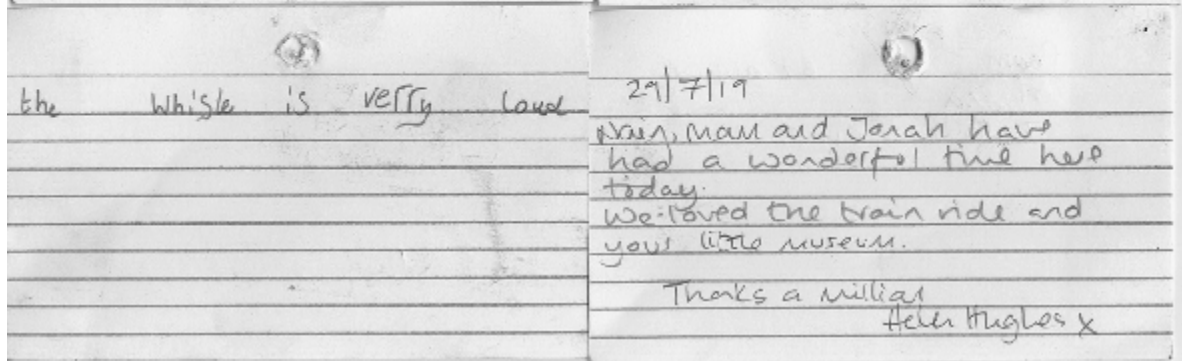 the whisle is verry loud
29/7/19
Nain, Mam and Jonah have
had a wonderful time here
today.
We loved the train ride and
your little museum.
Thanks a million
Helen Hughes x